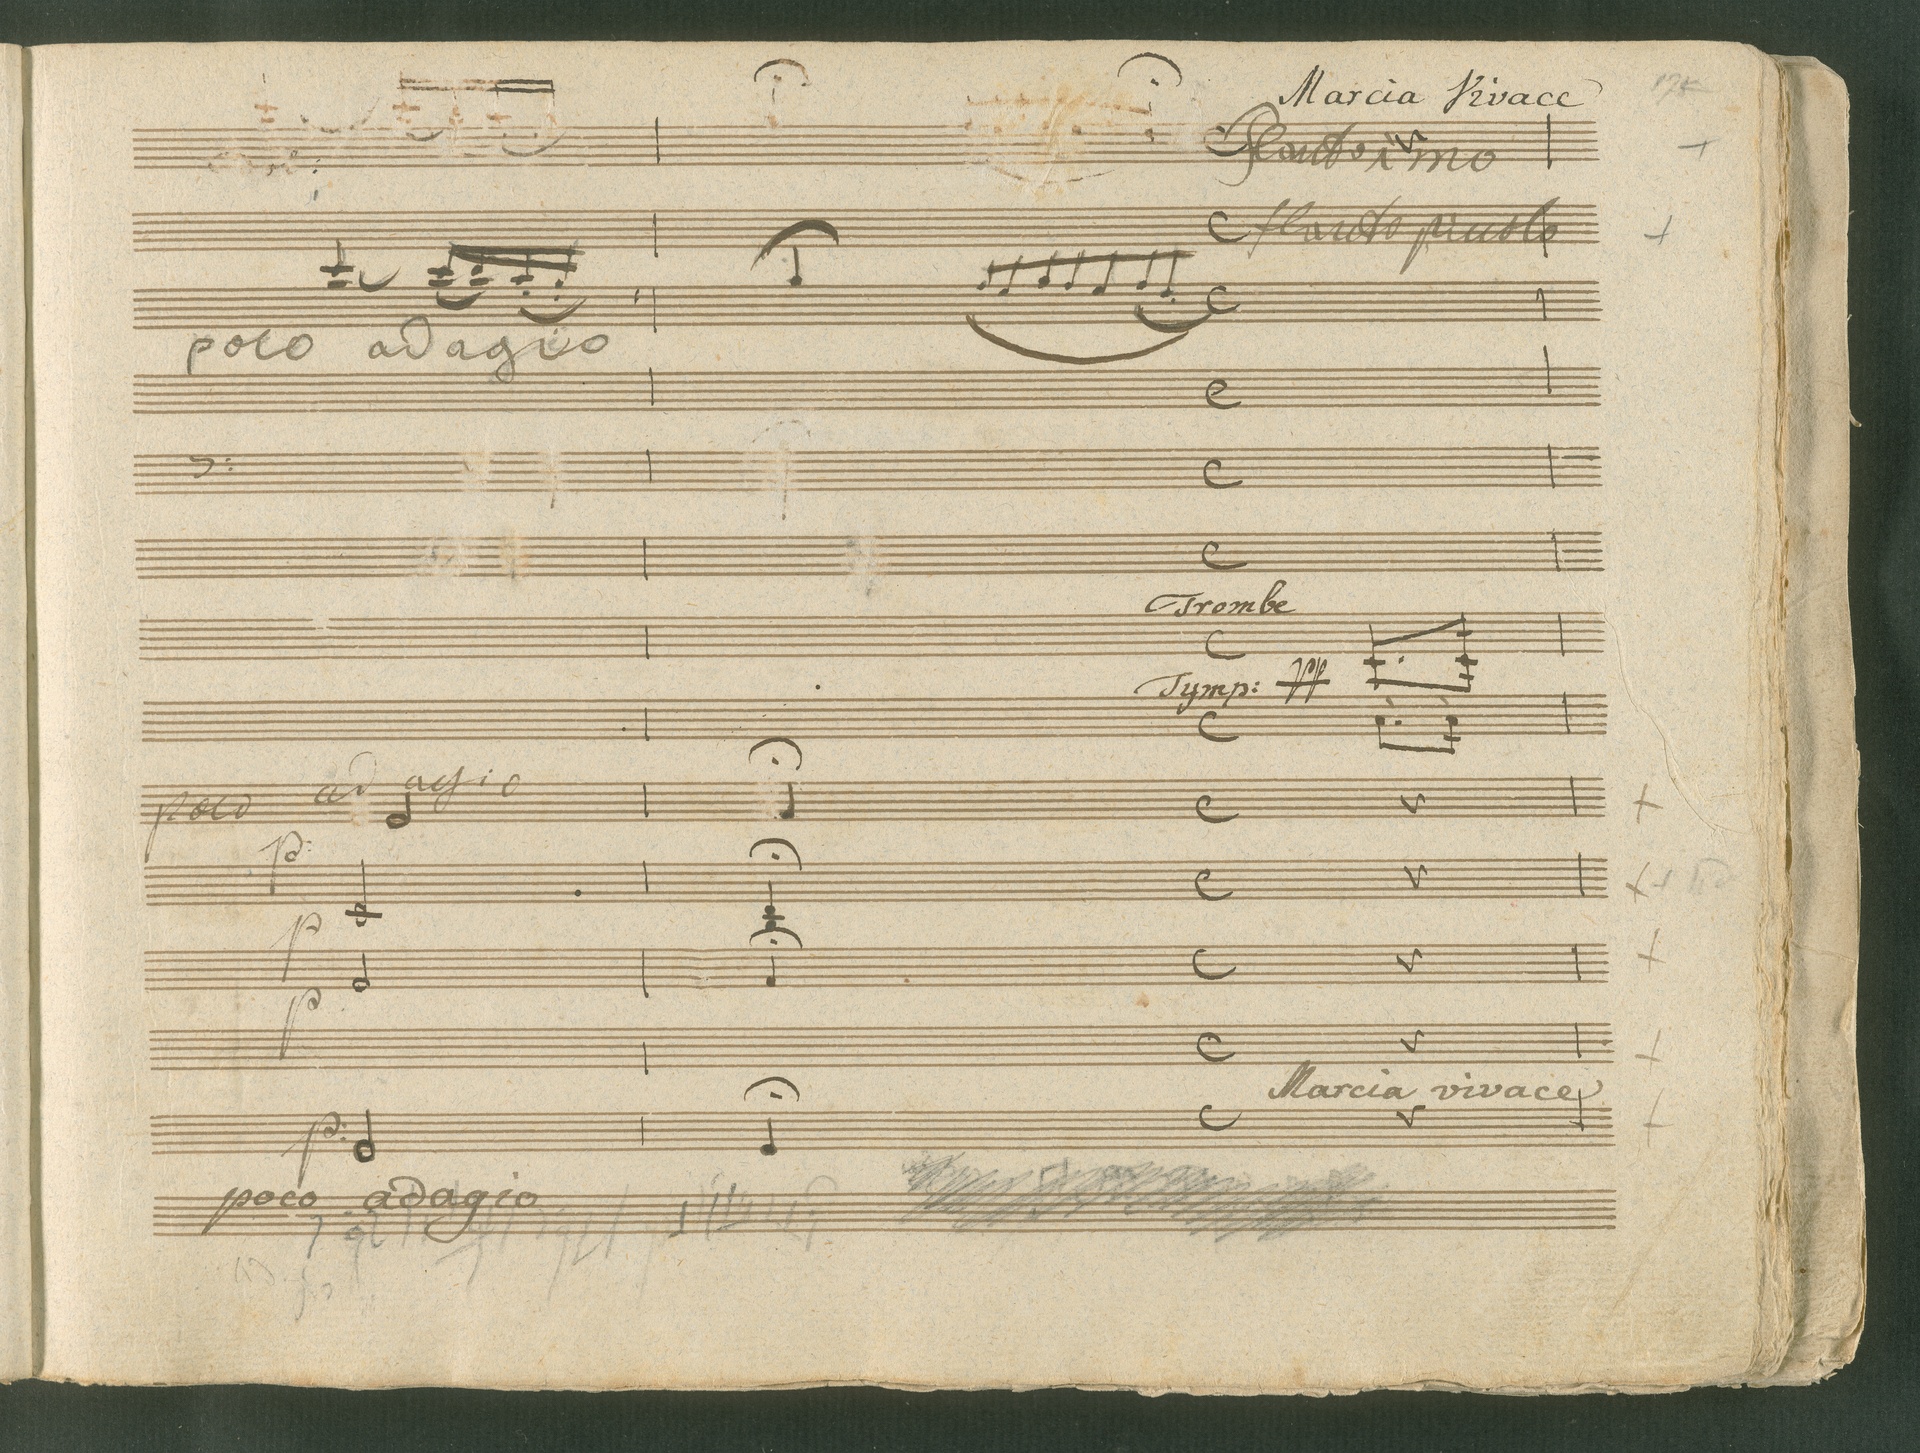 Marcia Vivace
Flauto imo
flauto piccolo
poco adagio
Trombe
Tymp: ff
poco adagio
p:
p
p
Marcia vivace
p:
poco adagio